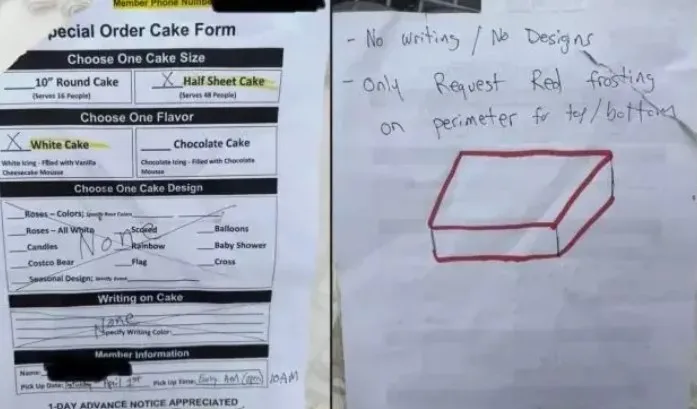 Member Phone Number
pecial Order Cake Form
Choose One Cake Size
10" Round Cake
(Serves 16 People)
X Half Sheet Cake
(Serves 48 People)
Choose One Flavor
X White Cake
White Icing - Filled with Vanilla
Cheesecake Mousse
Chocolate Cake
Chocolate Icing - Filled with Chocolate
Mousse
Choose One Cake Design
Roses - Colors;
Roses - All White
Candles
Costco Bear
Seasonal Design;
Scroled
Rainbow
Flag
Balloons
Baby Shower
Cross
None
Writing on Cake
None
Specify Writing Color
Member Information
Name:
Pick Up Date: Saturday April
Pick Up Time: Early AM (open) 10AM
1-DAY ADVANCE NOTICE APPRECIATED
- No writing / No Designs
- Only Request Red frosting
on perimeter for top/bottom